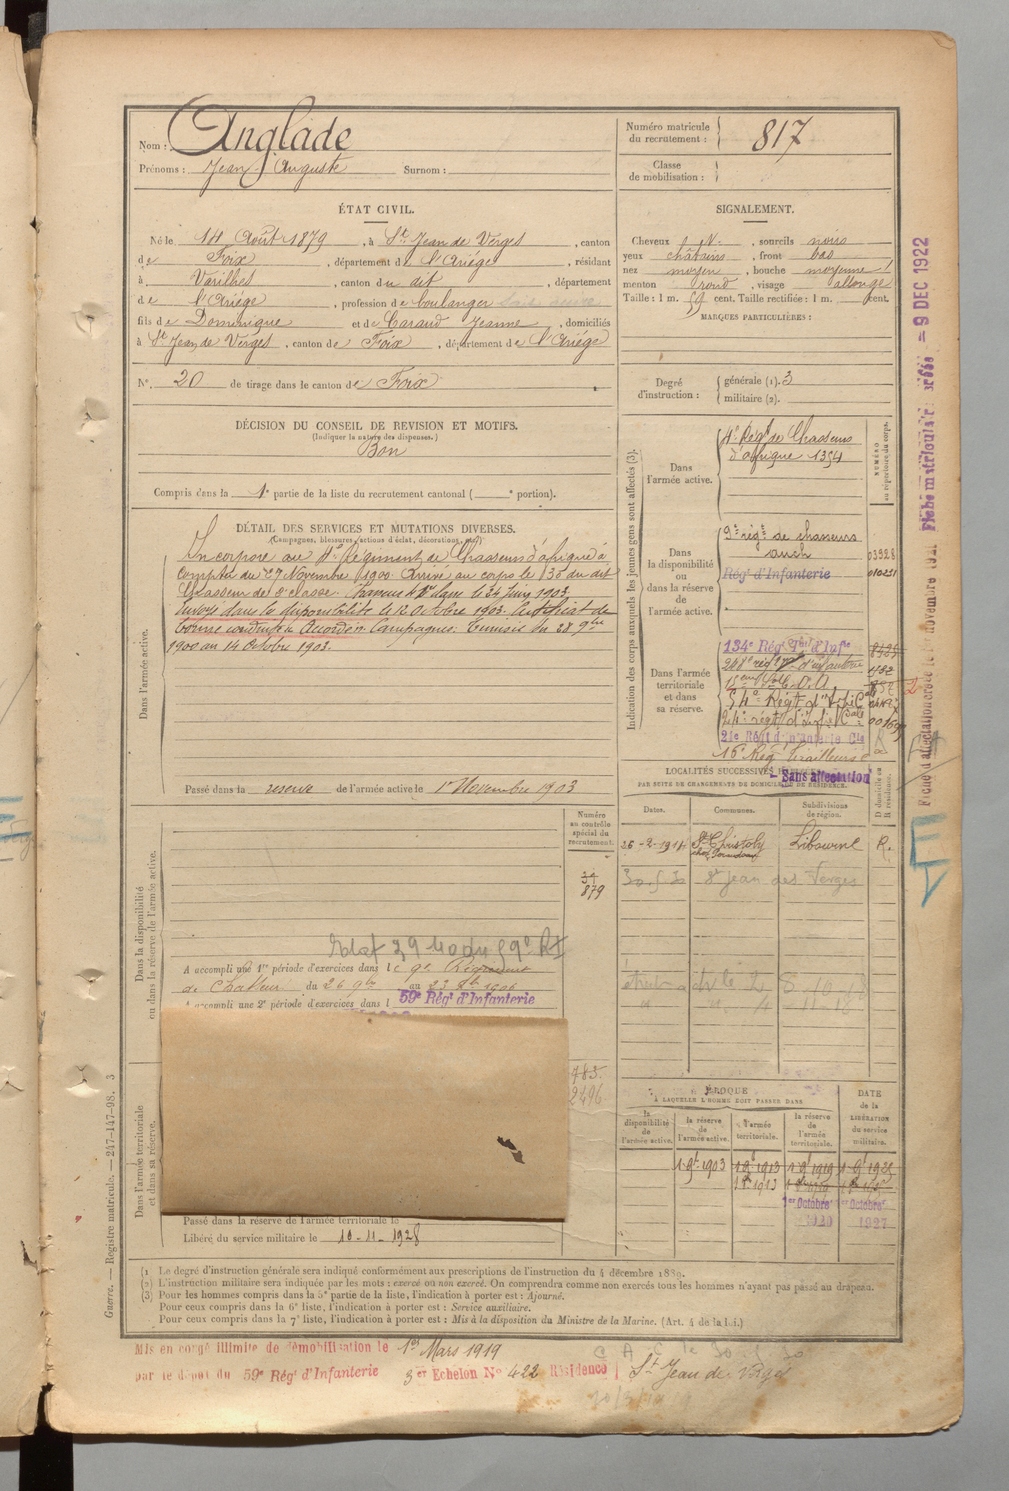 Nom : Anglade
Prénoms : Jean Auguste Surnom :
Numéro matricule du recrutement : 817
Classe de mobilisation :
ÉTAT CIVIL.
Né le 14 Août 1879, à St Jean de Verges, canton
de Foix, département de l'Ariége, résidant
à Varilhes, canton du dit, département
de l'Ariége, profession de boulanger
fils de Dominique et de Caraud Jeanne, domiciliés
à St Jean de Verges, canton de Foix, département de l'Ariége
N° 20 de tirage dans le canton de Foix
SIGNALEMENT.
Cheveux N., sourcils noirs
yeux châtains, front bas
nez moyen, bouche moyenne
menton rond, visage allongé
Taille : 1 m. 59 cent. Taille rectifiée : 1 m. cent.
MARQUES PARTICULIÈRES :
Degré d'instruction : générale (1). 3
militaire (2).
DÉCISION DU CONSEIL DE REVISION ET MOTIFS.
(Indiquer la nature des dispenses.)
Bon
Compris dans la 1e partie de la liste du recrutement cantonal ( e portion).
DÉTAIL DES SERVICES ET MUTATIONS DIVERSES.
(Campagnes, blessures, actions d'éclat, décorations, etc.)
Dans l'armée active.
Incorporé au 4e Régiment de Chasseurs d'afrique à
compter du 27 Novembre 1900. Arrivé au corps le 30 du dit
Chasseur de 2e classe. Chasseur de 1e classe le 24 Juin 1903.
Envoyé dans la disponibilité le 12 Octobre 1903. Certificat de
bonne conduite Accordé. Campagnes : Tunisie du 28 9bre
1900 au 14 Octobre 1903.
Passé dans la réserve de l'armée active le 1er Novembre 1903
Indication des corps auxquels les jeunes gens sont affectés (3).
NUMÉRO au répertoire du corps.
Dans l'armée active.
4e Régt de Chasseurs
d'afrique 1354
Dans la disponibilité ou dans la réserve de l'armée active.
9e régt de chasseurs
auch
03928
Régt d'Infanterie 010251
Dans l'armée territoriale et dans sa réserve.
134e Régt Terral d'Infie
16e Rég Tirailleurs
21e Régt d'Infanterie Cle
Sans affectation
LOCALITÉS SUCCESSIVES
PAR SUITE DE CHANGEMENTS DE DOMICILE OU DE RÉSIDENCE.
Dates. Communes. Subdivisions de région. D domicile ou R résidence.
26-2-1914 St Christoly Libourne R.
30.5.30 St Jean des Verges
Dans la disponibilité ou dans la réserve de l'armée active.
Numéro au contrôle spécial du recrutement.
879
A accompli une 1re période d'exercices dans le 9e Régiment
de Chasseurs du 26 9bre au 23 Xbre 1906
A accompli une 2e période d'exercices dans l 59e Régt d'Infanterie
Dans l'armée territoriale et dans sa réserve.
785.
2496
Passé dans la réserve de l'armée territoriale le
Libéré du service militaire le 10-11-1928
ÉPOQUE
À LAQUELLE L'HOMME DOIT PASSER DANS
la disponibilité de l'armée active.
la réserve de l'armée active.
l'armée territoriale.
la réserve de l'armée territoriale.
DATE de la LIBÉRATION du service militaire.
1 9bre 1903 1 9bre 1913 1 9bre 1919 1 9bre 1925
1er Octobre 1er Octobre
1920 1927
(1 Le degré d'instruction générale sera indiqué conformément aux prescriptions de l'instruction du 4 décembre 1889.
(2) L'instruction militaire sera indiquée par les mots : exercé ou non exercé. On comprendra comme non exercés tous les hommes n'ayant pas passé au drapeau.
(3) Pour les hommes compris dans la 5e partie de la liste, l'indication à porter est : Ajourné.
Pour ceux compris dans la 6e liste, l'indication à porter est : Service auxiliaire.
Pour ceux compris dans la 7e liste, l'indication à porter est : Mis à la disposition du Ministre de la Marine. (Art. 4 de la loi.)
Mis en congé illimité de démobilisation le 1er Mars 1919
par le dépôt du 59e Régt d'Infanterie 3er Echelon N° 422 Résidence St Jean de Verges
Guerre. — Registre matricule. — 247-147-98. 3
Fiche matriculaire créée - 9 DEC 1922